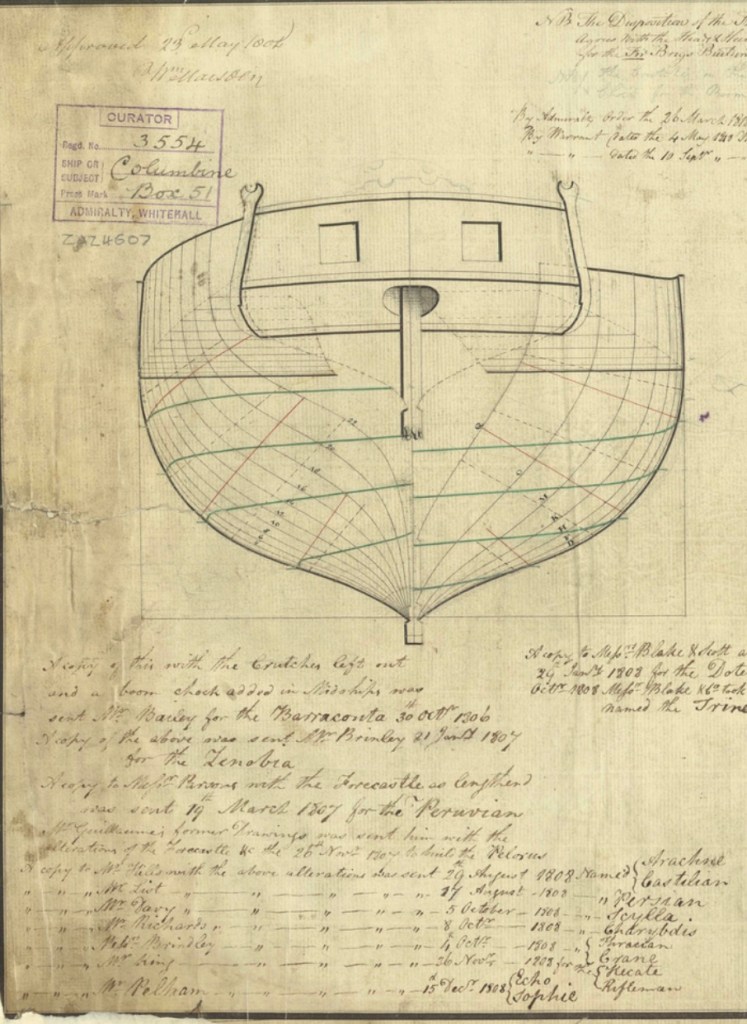 Approved 23 May 1806
Wm Marsden
N B The Disposition of the
Agrees with the
for the Fir Brigs
By Admiralty Order the 26 March
By Warrant dated the 4 May
" — " — dated the 10 Septr " —
CURATOR
Regd. No. 3554
SHIP OR SUBJECT Columbine
Press Mark Box 51
ADMIRALTY, WHITEHALL
ZAZ4607
A copy of this with the Crutches left out
and a boom chock added in Midships was
sent Mr. Bailey for the Barraconta 30th Octr 1806
A copy of the above was sent Mr. Brinley 21 Jany 1807
for the Zenobia
A copy to Messrs Parsons with the Forecastle as lengthend
was sent 19th March 1807 for the Peruvian
Mr Guillaume's former Drawings was sent him with the
alterations of the Forecastle &c the 26th Novr 1807 to build the Pelorus
A copy to Messrs Blake & Scott
29 Jany 1808 for the Dote
Octr 1808 Messrs Blake & Co
named the Trin
A copy to Mr Hills with the above alterations was sent 29 August 1808 Named { Arachne
Castilian
" " Mr List " — " — " — " — 17 August — 1808 " Persian
" " Mr Davy " — " — " — " — 5 October — 1808 " Scylla
" " Mr Richards " — " — " — " — 8 Octr — 1808 " Charybdis
" " Messrs Brindley " — " — " — " — Octr — 1808 " { Thracian
" " Mr King " — " — " — " — 26 Novr — 1808 for the { Crane
Hecate
Rifleman
" " Mr Pelham — " — " — " — " — 15th Decr 1808 { Echo
Sophie